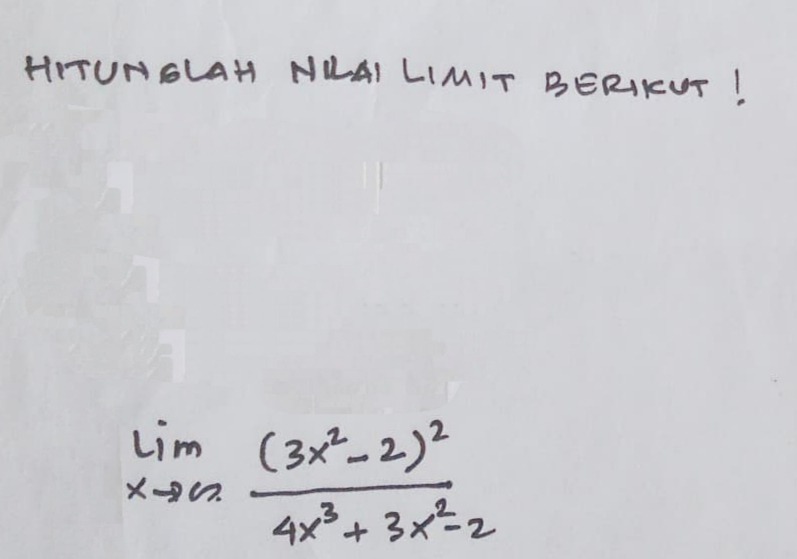 HITUNGLAH NILAI LIMIT BERIKUT !
Lim x→∞ (3x²-2)² / 4x³ + 3x²-2